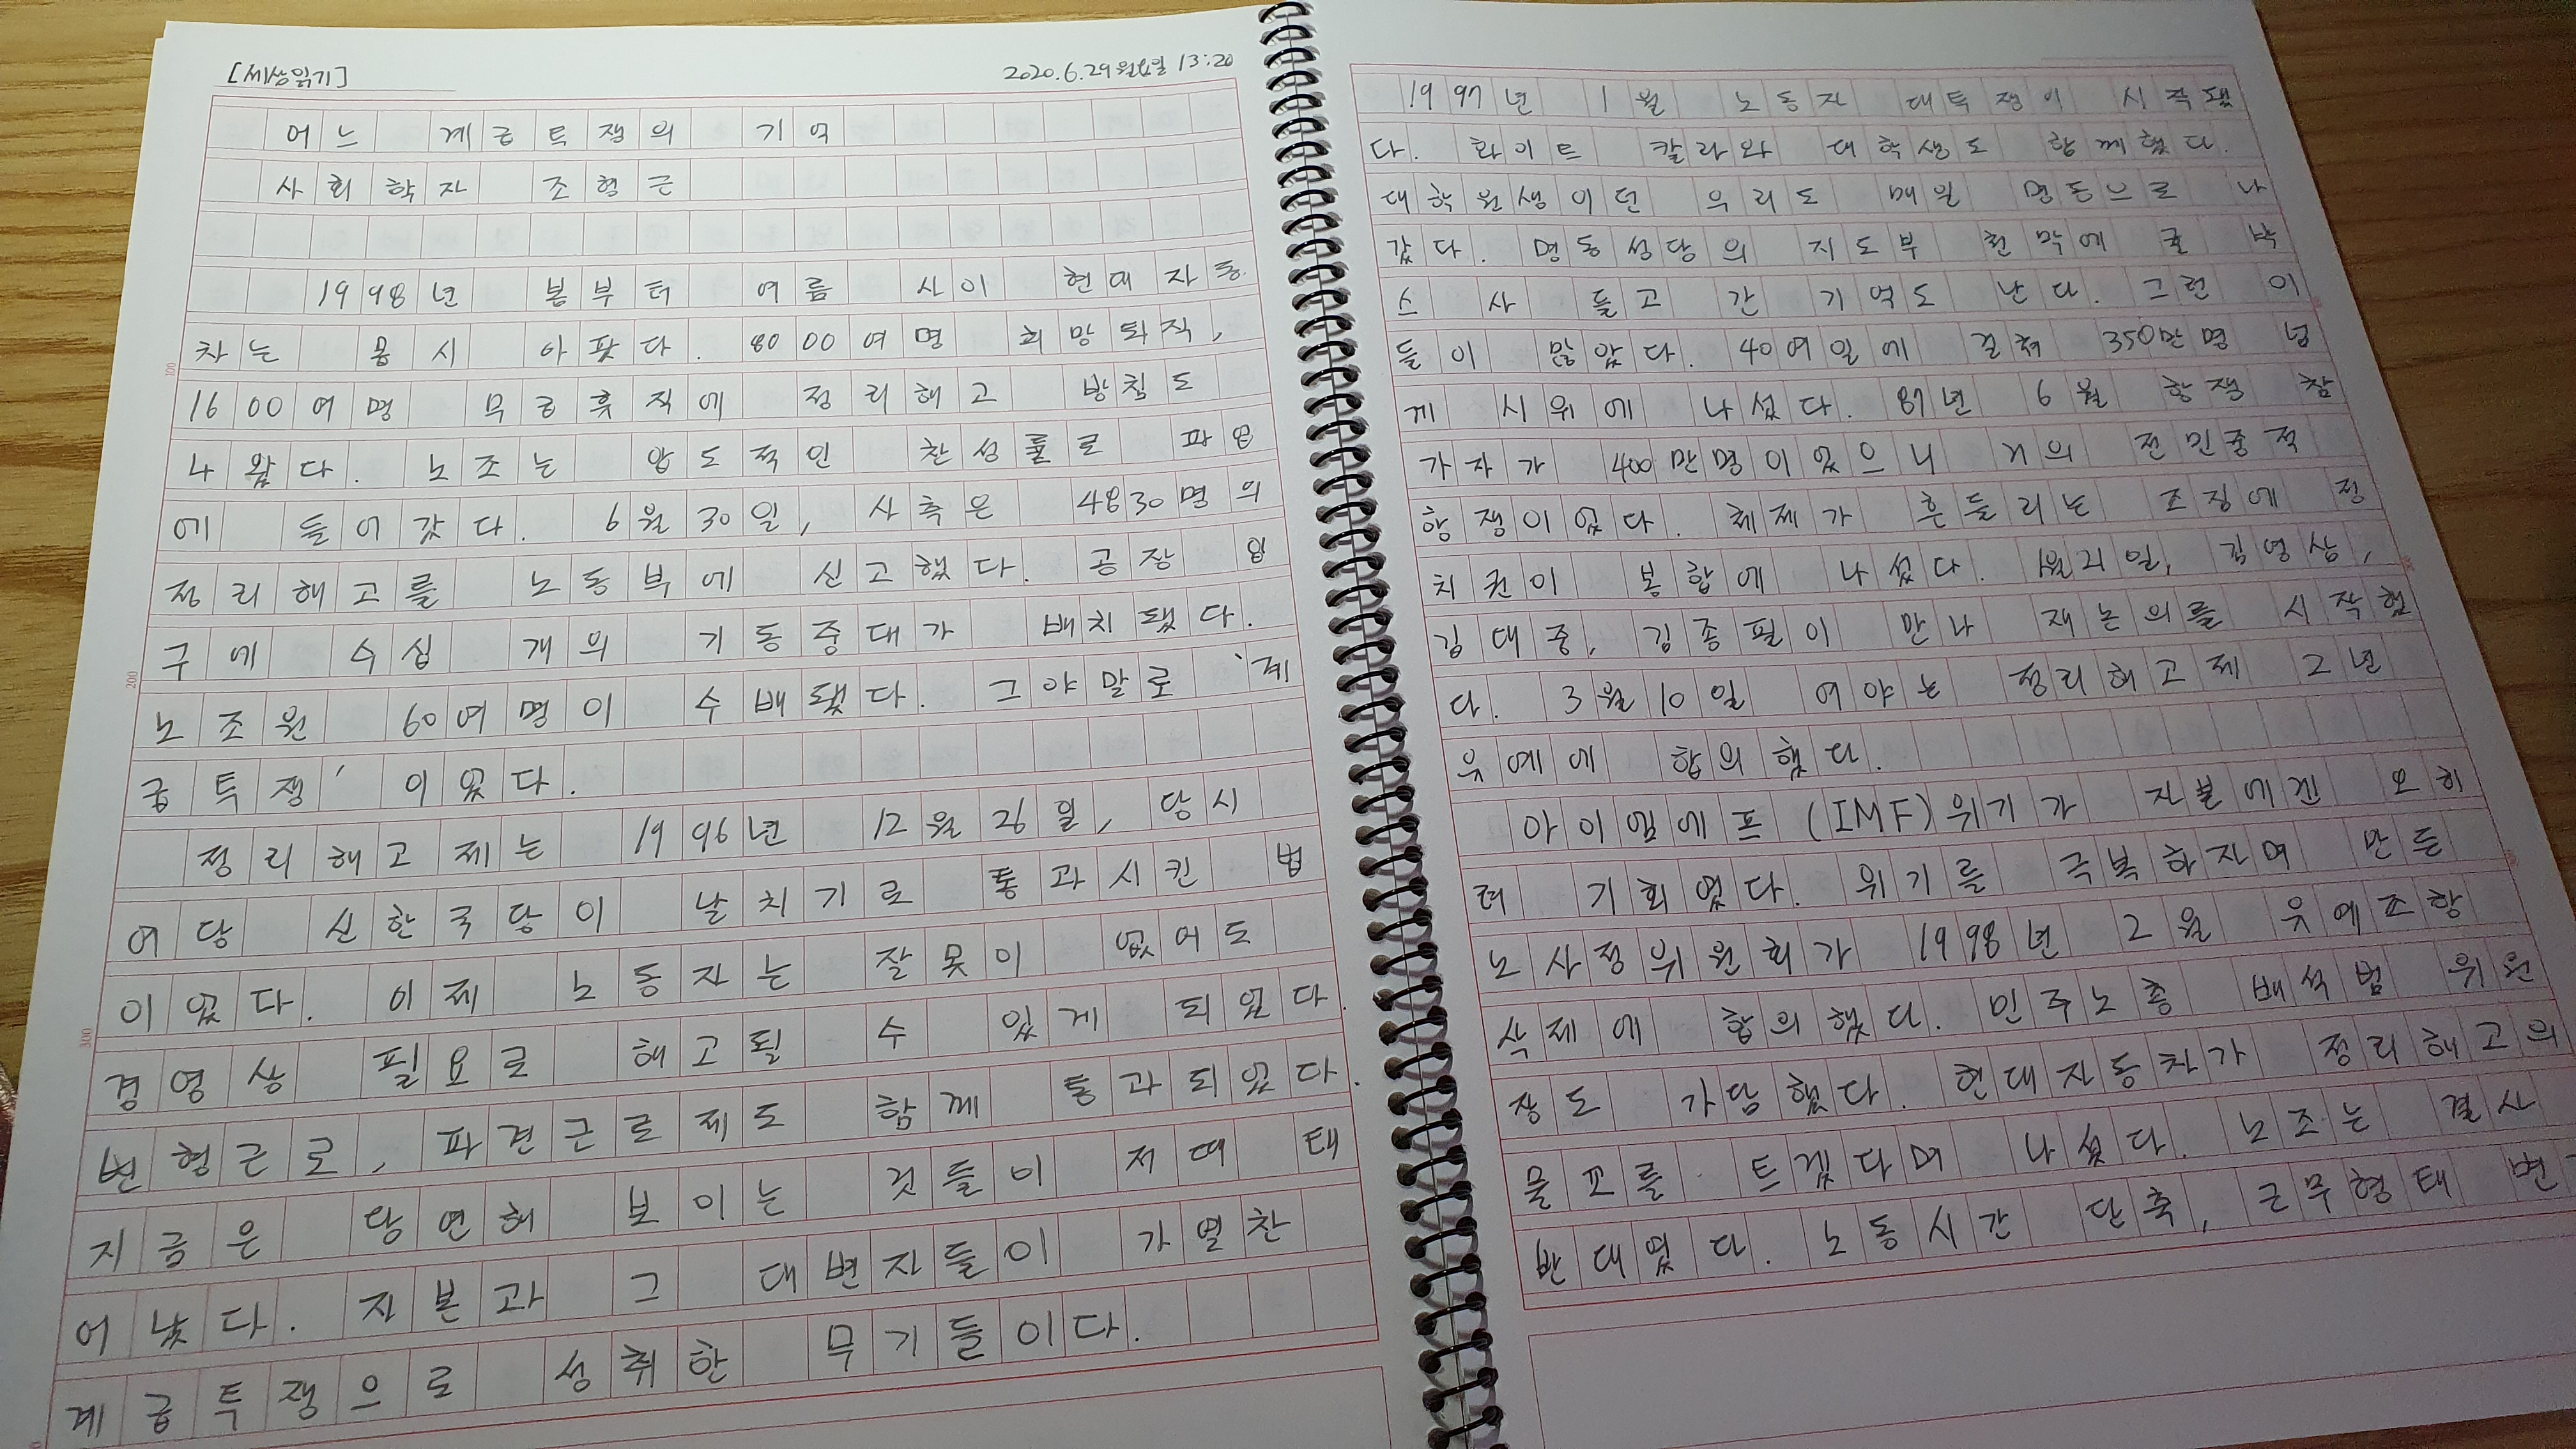 [세상읽기]
2020.6.29월요일 13:20
어느 계급투쟁의 기억
사회학자 조형근
1998년 봄부터 여름 사이 현대자동
차는 몹시 아팠다. 8000여명 희망퇴직,
1600여명 무급휴직에 정리해고 방침도
나왔다. 노조는 압도적인 찬성률로 파업
에 들어갔다. 6월 30일, 사측은 4830명의
정리해고를 노동부에 신고했다. 공장 입
구에 수십 개의 기동중대가 배치됐다.
노조원 60여명이 수배됐다. 그야말로 '계
급투쟁' 이었다.
정리해고제는 1996년 12월 26일, 당시
여당 신한국당이 날치기로 통과시킨 법
이었다. 이제 노동자는 잘못이 없어도
경영상 필요로 해고될 수 있게 되었다.
변형근로, 파견근로제도 함께 통과되었다.
지금은 당연해 보이는 것들이 저때 태
어났다. 자본과 그 대변자들이 가열찬
계급투쟁으로 성취한 무기들이다.
1997년 1월 노동자 대투쟁이 시작됐
다. 화이트 칼라와 대학생도 함께했다.
대학원생이던 우리도 매일 명동으로 나
갔다. 명동성당의 지도부 천막에 귤 박
스 사 들고 간 기억도 난다. 그런 이
들이 많았다. 40여일에 걸쳐 350만명 넘
게 시위에 나섰다. 87년 6월 항쟁 참
가자가 400만명이었으니 거의 전민중적
항쟁이었다. 체제가 흔들리는 조짐에 정
치권이 봉합에 나섰다. 1월21일, 김영삼,
김대중, 김종필이 만나 재논의를 시작했
다. 3월10일 여야는 정리해고제 2년
유예에 합의했다.
아이엠에프(IMF)위기가 자본에겐 오히
려 기회였다. 위기를 극복하자며 만든
노사정위원회가 1998년 2월 유예조항
삭제에 합의했다. 민주노총 배석범 위원
장도 가담했다. 현대자동차가 정리해고의
물꼬를 트겠다며 나섰다. 노조는 결사
반대였다. 노동시간 단축, 근무형태 변